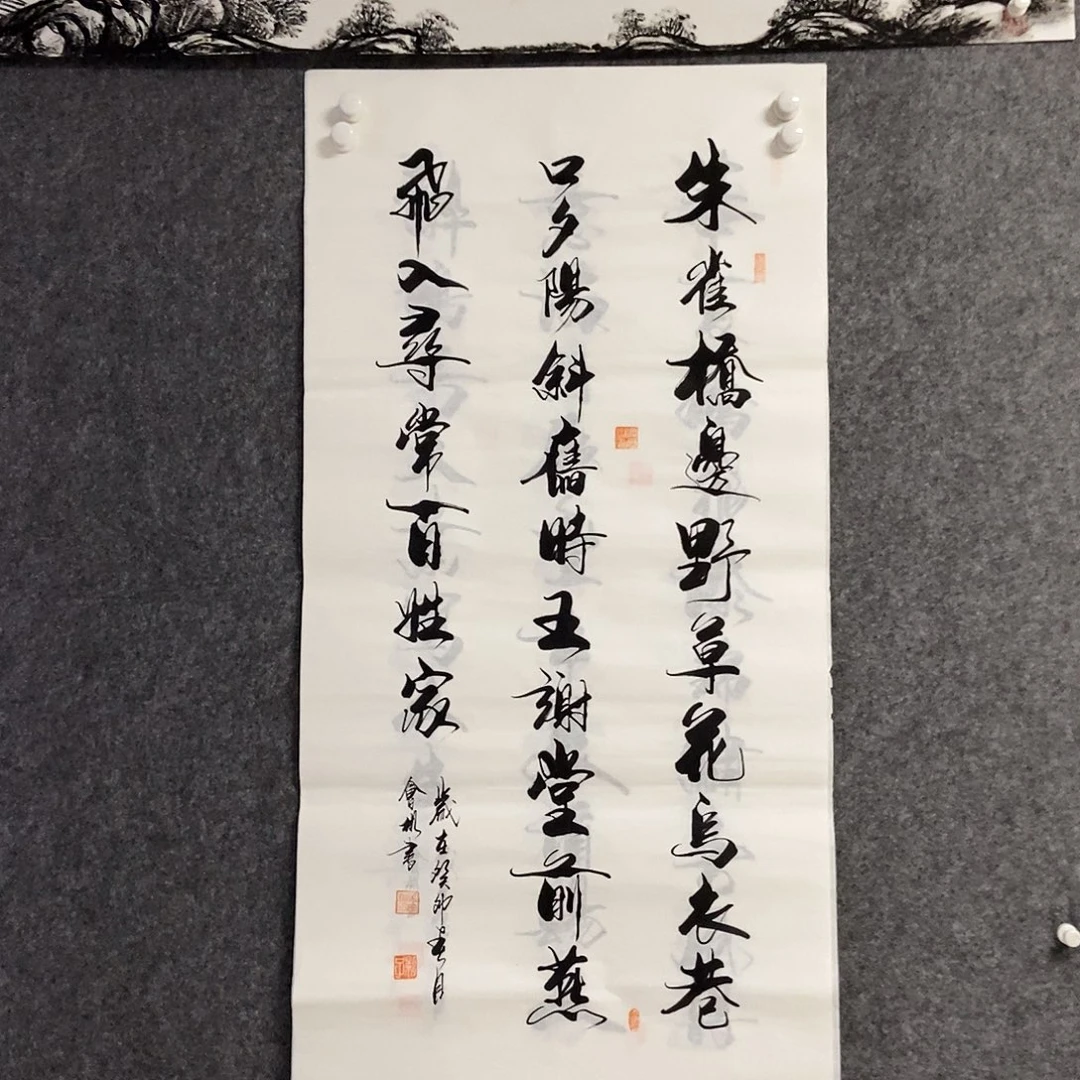 朱雀橋邊野草花烏衣巷
口夕陽斜舊時王謝堂前燕
飛入尋常百姓家
歲在癸卯春月
會彬書